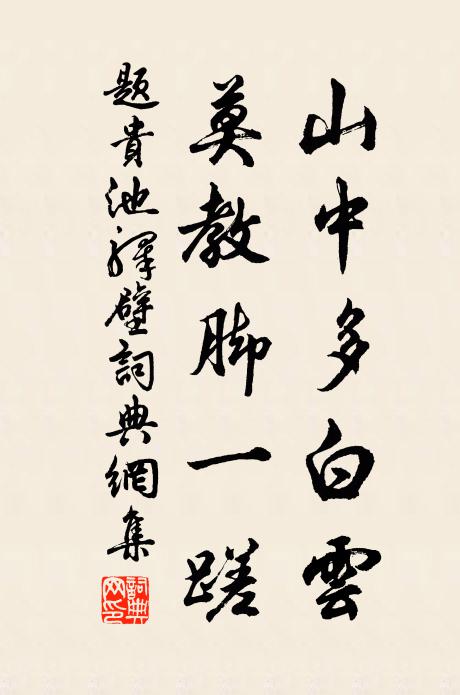 山中多白雲
莫教脚一蹉
題貴池驛壁詞典網集
詞典
网印